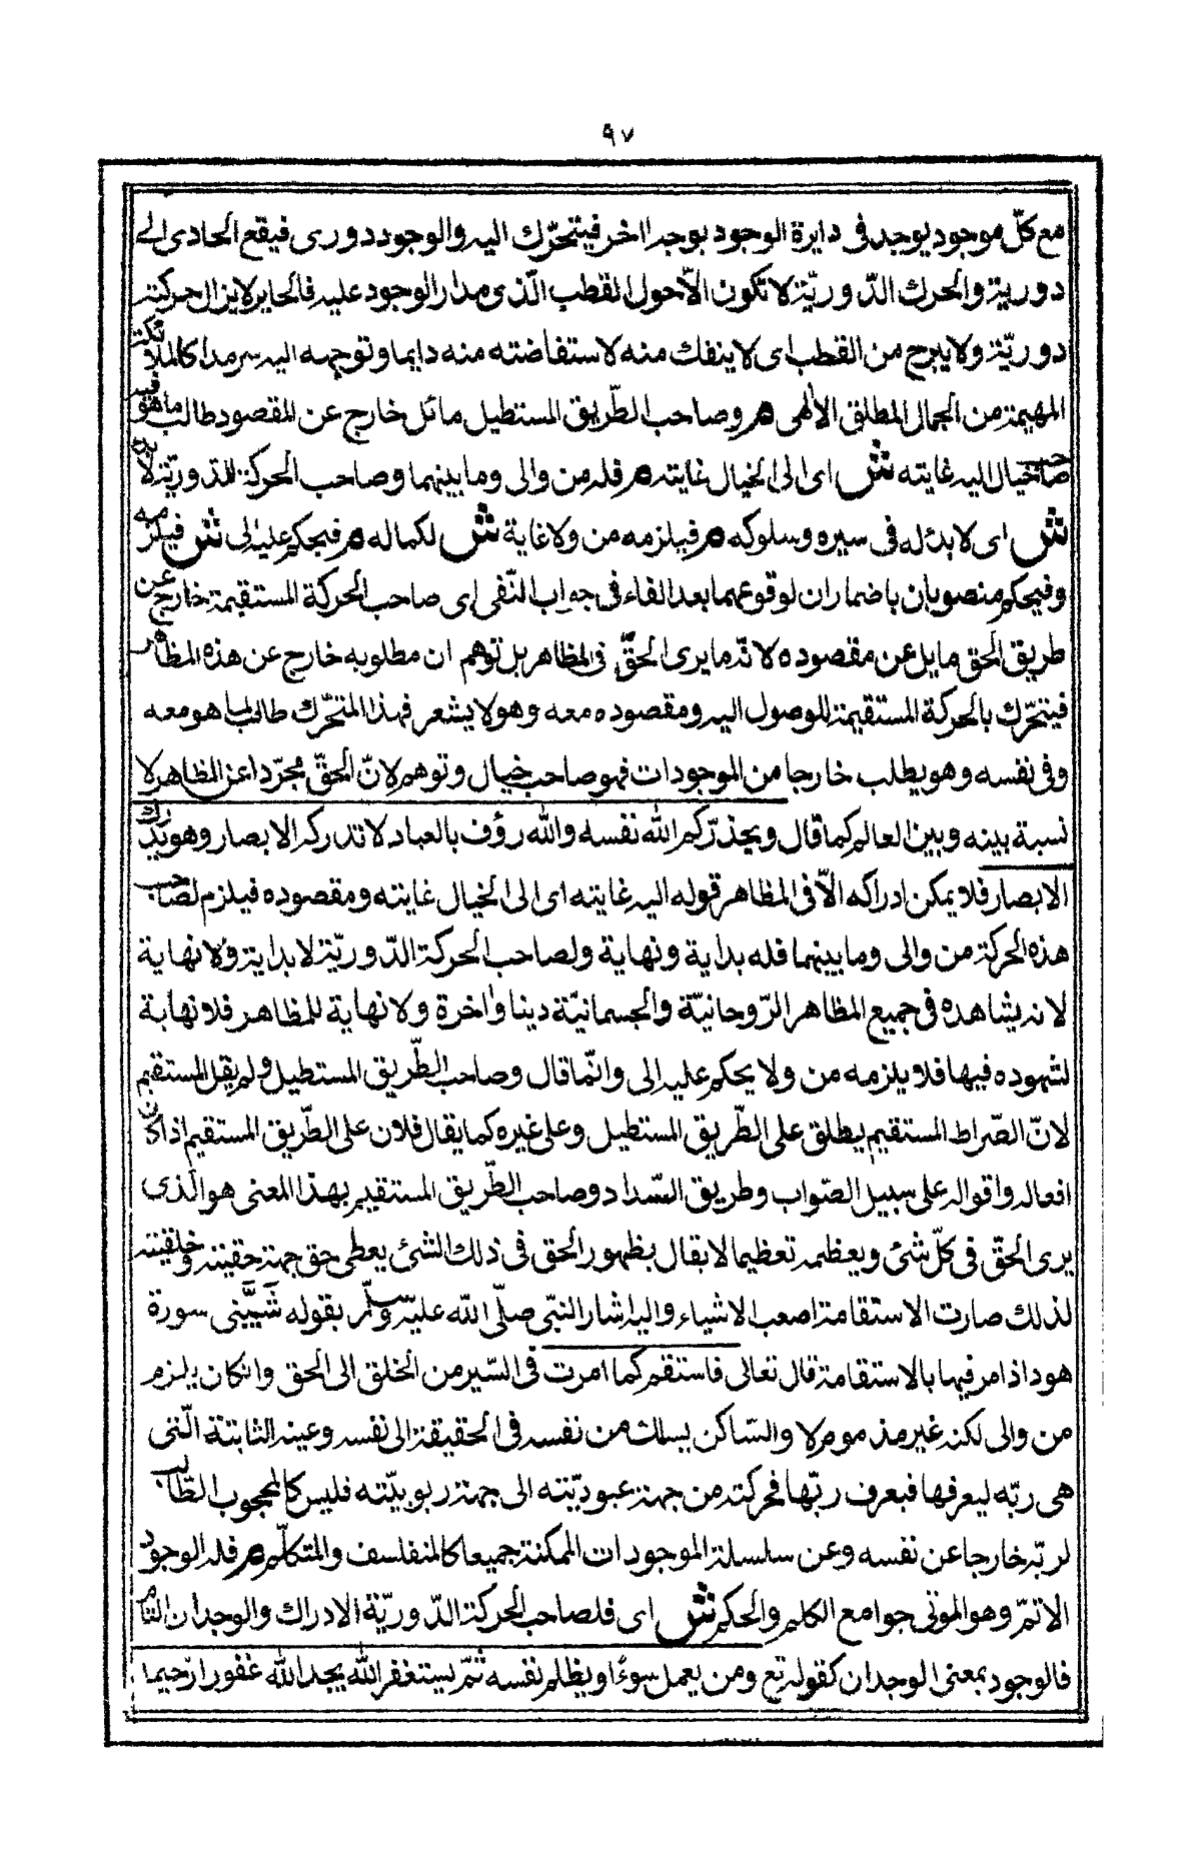 ٩٧
مع كلّ موجود يوجد فى دايرة الوجود بوجه اخر فيتحرّك اليه والوجود دورى فيقع الحادى الى
دورية والحرك الدّوريّة لا تكون الّا حول القطب الّذى مدار الوجود عليه فالحاير لا يزال حركته
دوريّة ولا يبرح من القطب اى لا ينفك منه لاستفاضته منه دايما وتوجهه اليه سرمدا كالملائكة
المهيمة من الجمال المطلق الالهى م وصاحب الطّريق المستطيل مائل خارج عن المقصود طالب ما هو فيه
صاحب خيال اليه غايته ش اى الى الخيال غايته م فله من والى وما بينهما وصاحب الحركة الدّوريّة لا بدء
ش اى لا بدء له فى سيره وسلوكه م فيلزمه من ولا غاية ش لكماله م فيحكم عليه الى ش فيلزمه
وفيحكم منصوبان باضمار ان لوقوعهما بعد الفاء فى جواب النّفى اى صاحب الحركة المستقيمة خارج عن
طريق الحق مايل عن مقصوده لانّه ما يرى الحقّ فى المظاهر بل توهم ان مطلوبه خارج عن هذه المظاهر
فيتحرّك بالحركة المستقيمة للوصول اليه ومقصوده معه وهو لا يشعر فهذا المتحرّك طالب لما هو معه
وفى نفسه وهو يطلب خارجا من الموجودات فهو صاحب خيال وتوهم لانّ الحقّ مجرّدا عن المظاهر لا
نسبة بينه وبين العالم كما قال ويحذّركم الله نفسه والله رؤف بالعباد لا تدركه الابصار وهو يدرك
الابصار فلا يمكن ادراكه الّا فى المظاهر قوله اليه غايته اى الى الخيال غايته ومقصوده فيلزم لصاحب
هذه الحركة من والى وما بينهما فله بداية ونهاية ولصاحب الحركة الدّوريّة لا بداية ولا نهاية
لانه يشاهده فى جميع المظاهر الرّوحانيّة والجسمانيّة دينا واخرة ولا نهاية للمظاهر فلا نهاية
لشهوده فيها فلا يلزمه من ولا يحكم عليه الى وانّما قال وصاحب الطّريق المستطيل ولم يقل المستقيم
لانّ الصّراط المستقيم يطلق على الطّريق المستطيل وعلى غيره كما يقال فلان على الطّريق المستقيم اذا كان
افعاله واقواله على سبيل الصّواب وطريق السّداد وصاحب الطّريق المستقيم بهذا المعنى هو الّذى
يرى الحقّ فى كلّ شئ ويعظمه تعظيما لايقال بظهور الحق فى ذلك الشئ يعطى حق جهة حقيته وخلقيته
لذلك صارت الاستقامة اصعب الاشياء واليه اشار النبّى صلّى الله عليه وسلّم بقوله شيّبتنى سورة
هود اذ امر فيها بالاستقامة قال تعالى فاستقم كما امرت فى السّير من الخلق الى الحق وان كان يلزم
من والى لكنه غير مذموم لا والسّاكن يسلك من نفسه فى الحقيقة الى نفسه وعينه الثابتة الّتى
هى ربّه ليعرفها فيعرف ربّها فحركته من جهة عبوديّته الى جهة ربوبيّته فليس كالمحجوب الطّالب
لربّه خارجا عن نفسه وعن سلسلة الموجودات الممكنة جميعا كالمتفلسف والمتكلّم م فله الوجود
الاتمّ وهو الموتى جوامع الكلم والحكم ش اى فلصاحب الحركة الدّوريّة الادراك والوجدان التام
فالوجود بمعنى الوجدان كقوله تع ومن يعمل سوءًا او يظلم نفسه ثمّ يستغفر الله يجد الله غفورا رّحيما